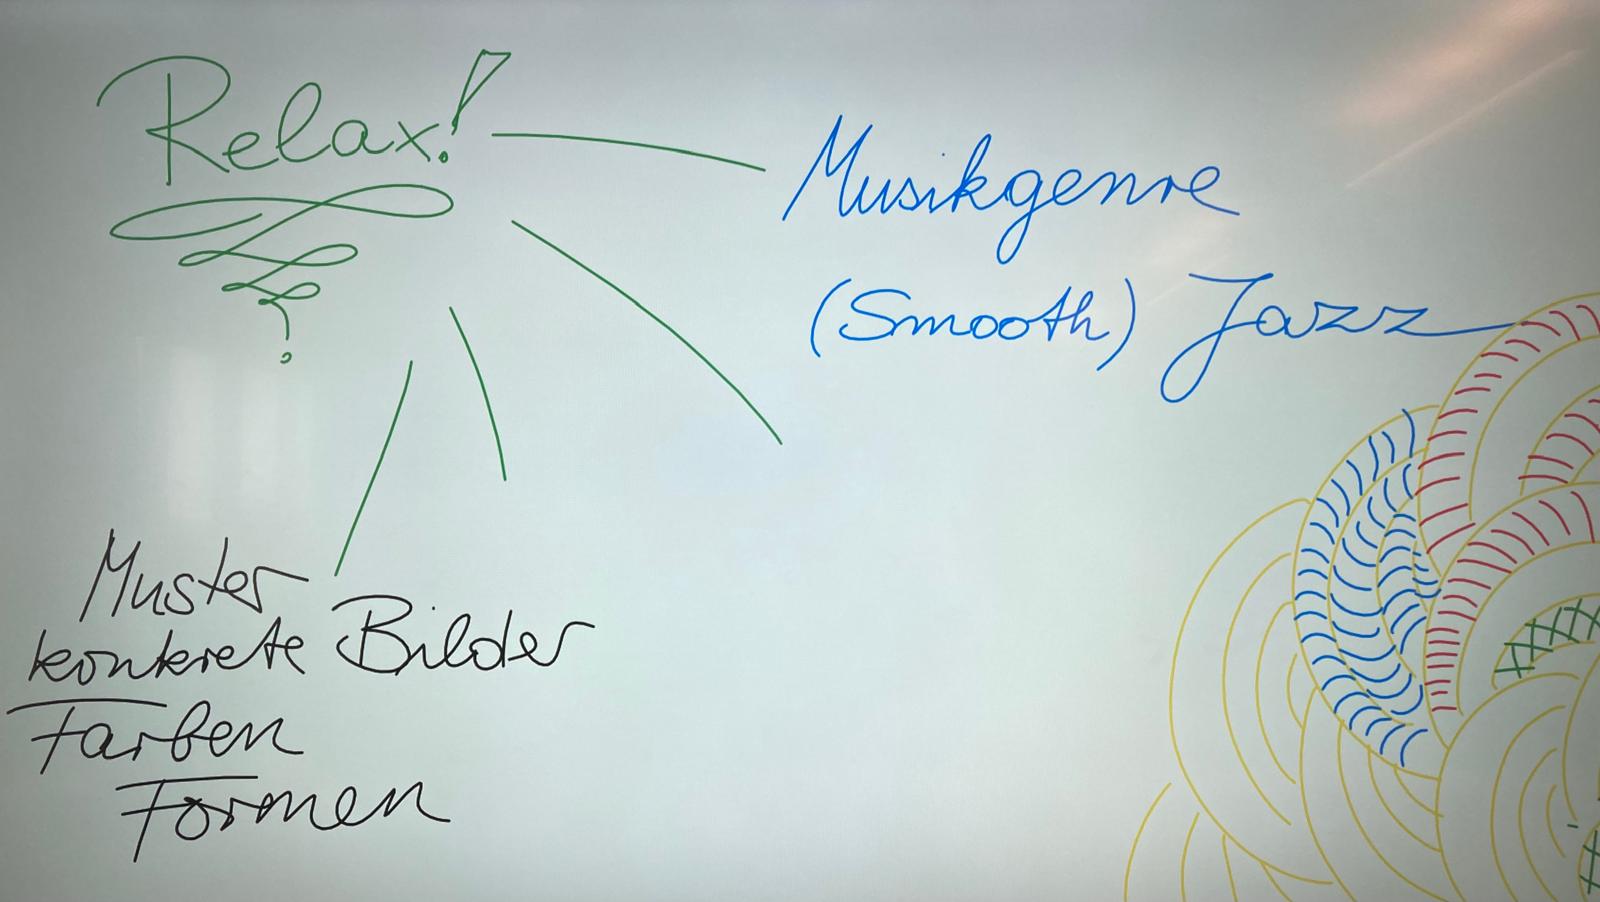 Relax!
Musikgenre
(Smooth) Jazz
Muster
konkrete Bilder
Farben
Formen